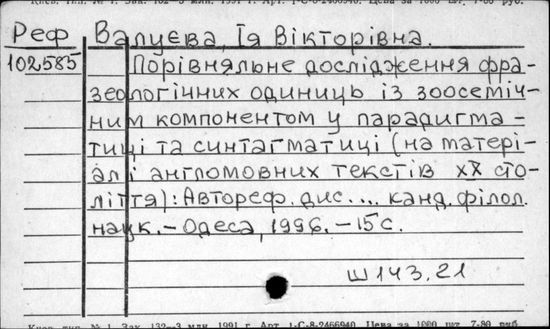 Київ. тип. № 1. Зак. 132—3 млн. 1991 г. Арт. 1-С-8-2466940. Цена за 1000 шт. 7-80 руб.
Реф Валуєва, Ія Вікторівна.
102585 Порівняльне дослідження фра-
зеологічних одиниць із зоосеміч-
ним компонентом у парадигма-
тиці та синтагматиці (на матері-
алі англомовних текстів ХХ сто-
ліття): Автореф. дис. ... канд. філол.
наук. – Одеса, 1996. – 15 с.
Ш143.21
№ 1. Зак. 132—3 млн. 1991 г. Арт. 1-С-8-2466940. Цена за 1000 шт. 7-80 руб.